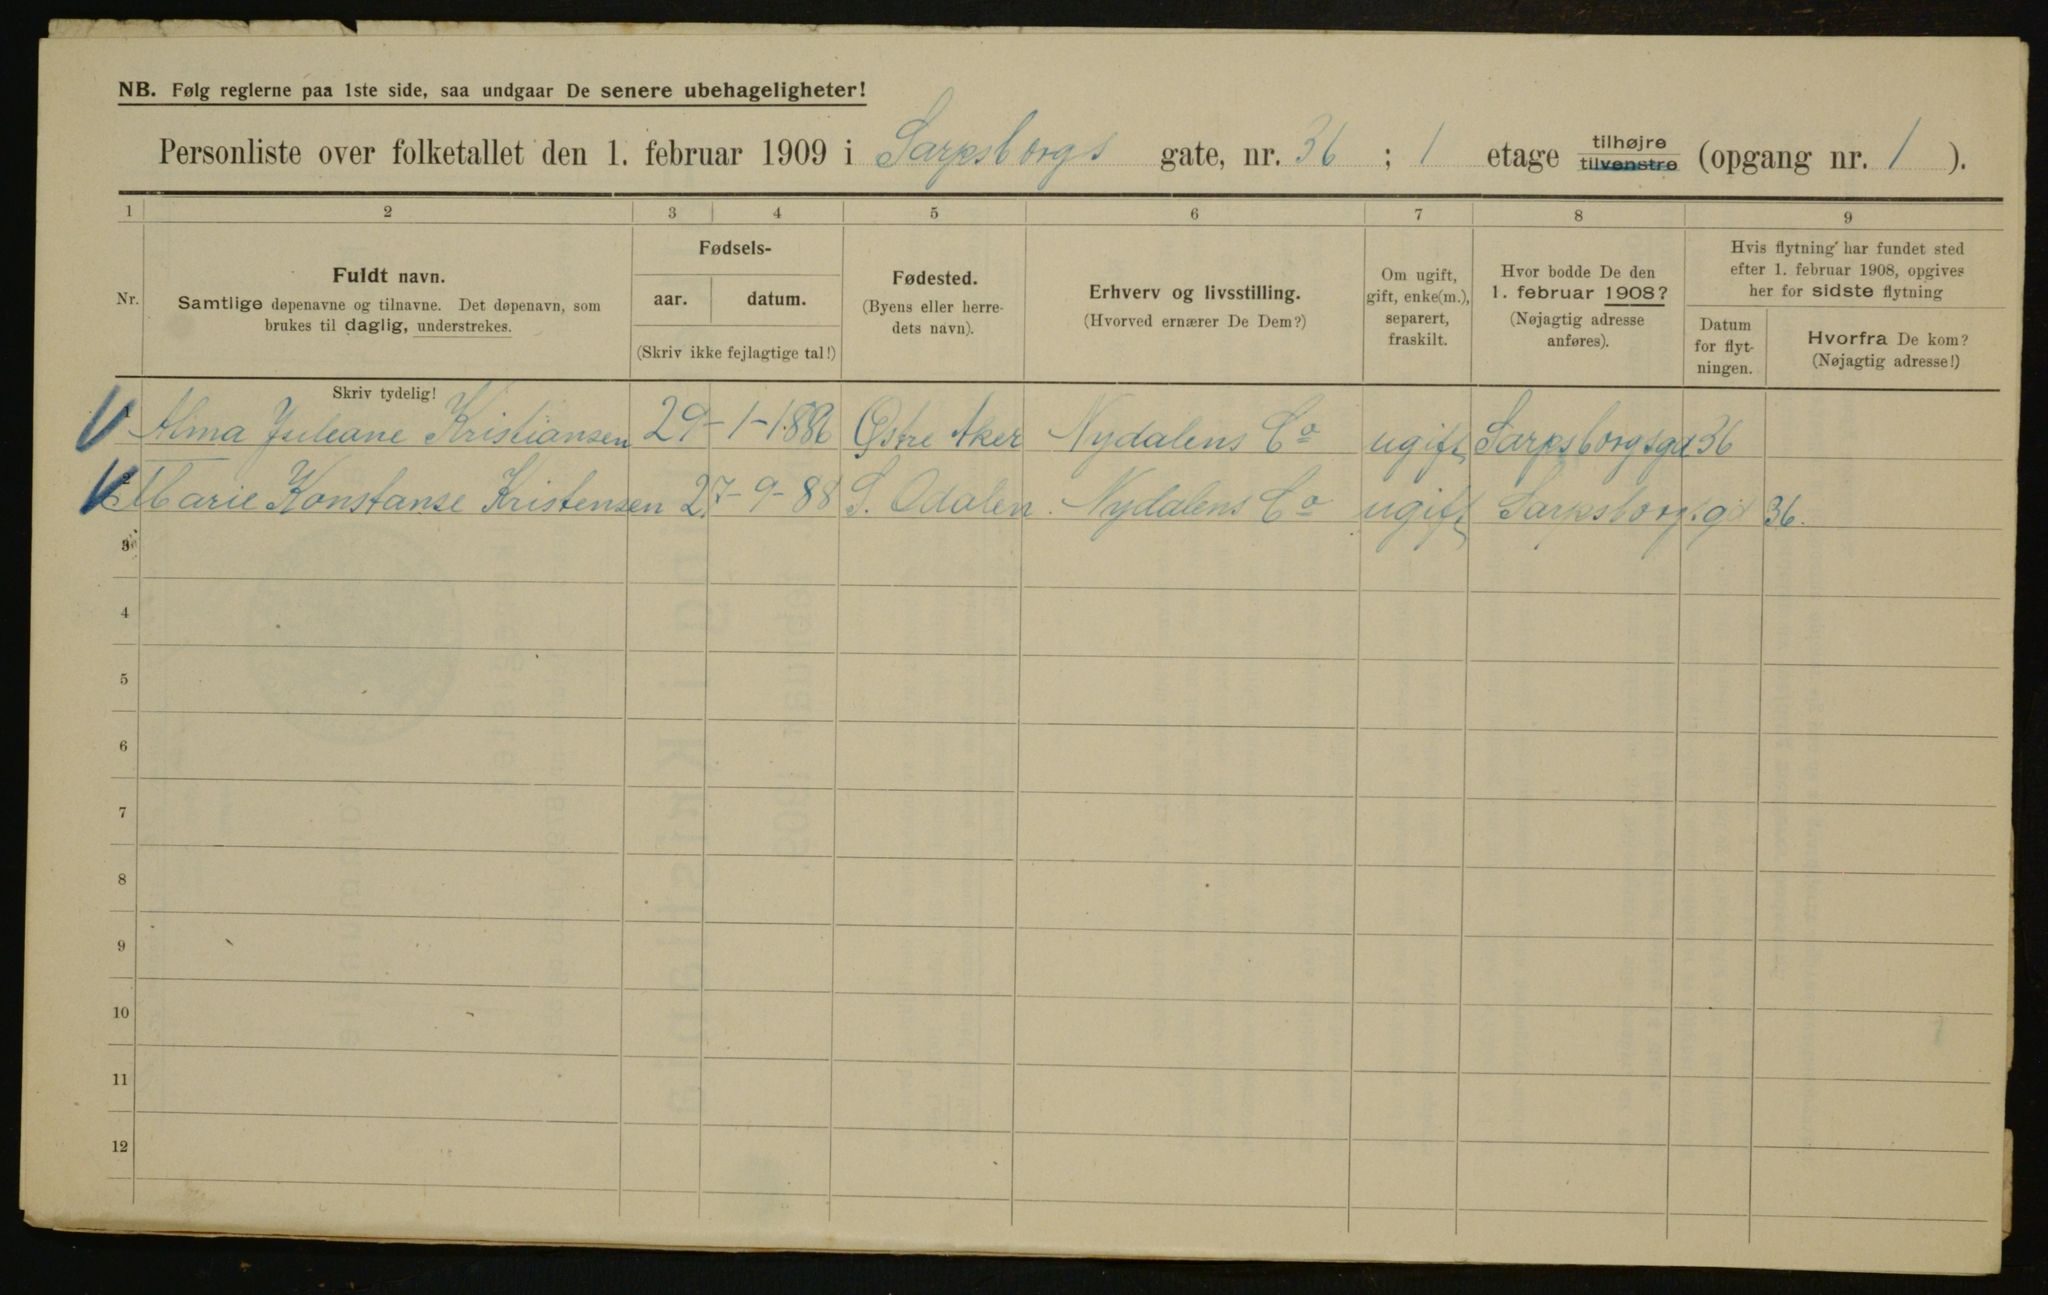 NB. Følg reglerne paa 1ste side, saa undgaar De senere ubehageligheter!
Personliste over folketallet den 1. februar 1909 i Sarpsborgs gate, nr. 36 ; 1 etage tilhøjre tilvenstre (opgang nr. 1 ).
1 2 3 4 5 6 7 8 9
Nr.
Fuldt navn.
Samtlige døpenavne og tilnavne. Det døpenavn, som
brukes til daglig, understrekes.
Fødsels-
aar. datum.
(Skriv ikke fejlagtige tal!)
Fødested.
(Byens eller herre-
dets navn).
Erhverv og livsstilling.
(Hvorved ernærer De Dem?)
Om ugift,
gift, enke(m.),
separert,
fraskilt.
Hvor bodde De den
1. februar 1908?
(Nøjagtig adresse
anføres).
Hvis flytning har fundet sted
efter 1. februar 1908, opgives
her for sidste flytning
Datum
for flyt-
ningen.
Hvorfra De kom?
(Nøjagtig adresse!)
Skriv tydelig!
1 Alma Juleane Kristiansen 29-1-1886 Østre Aker Nydalens Co ugift Sarpsborgsgd 36
2 Marie Konstanse Kristensen 27-9-88 S. Odalen Nydalens Co ugift Sarpsborgsgd 36.
3
4
5
6
7
8
9
10
11
12